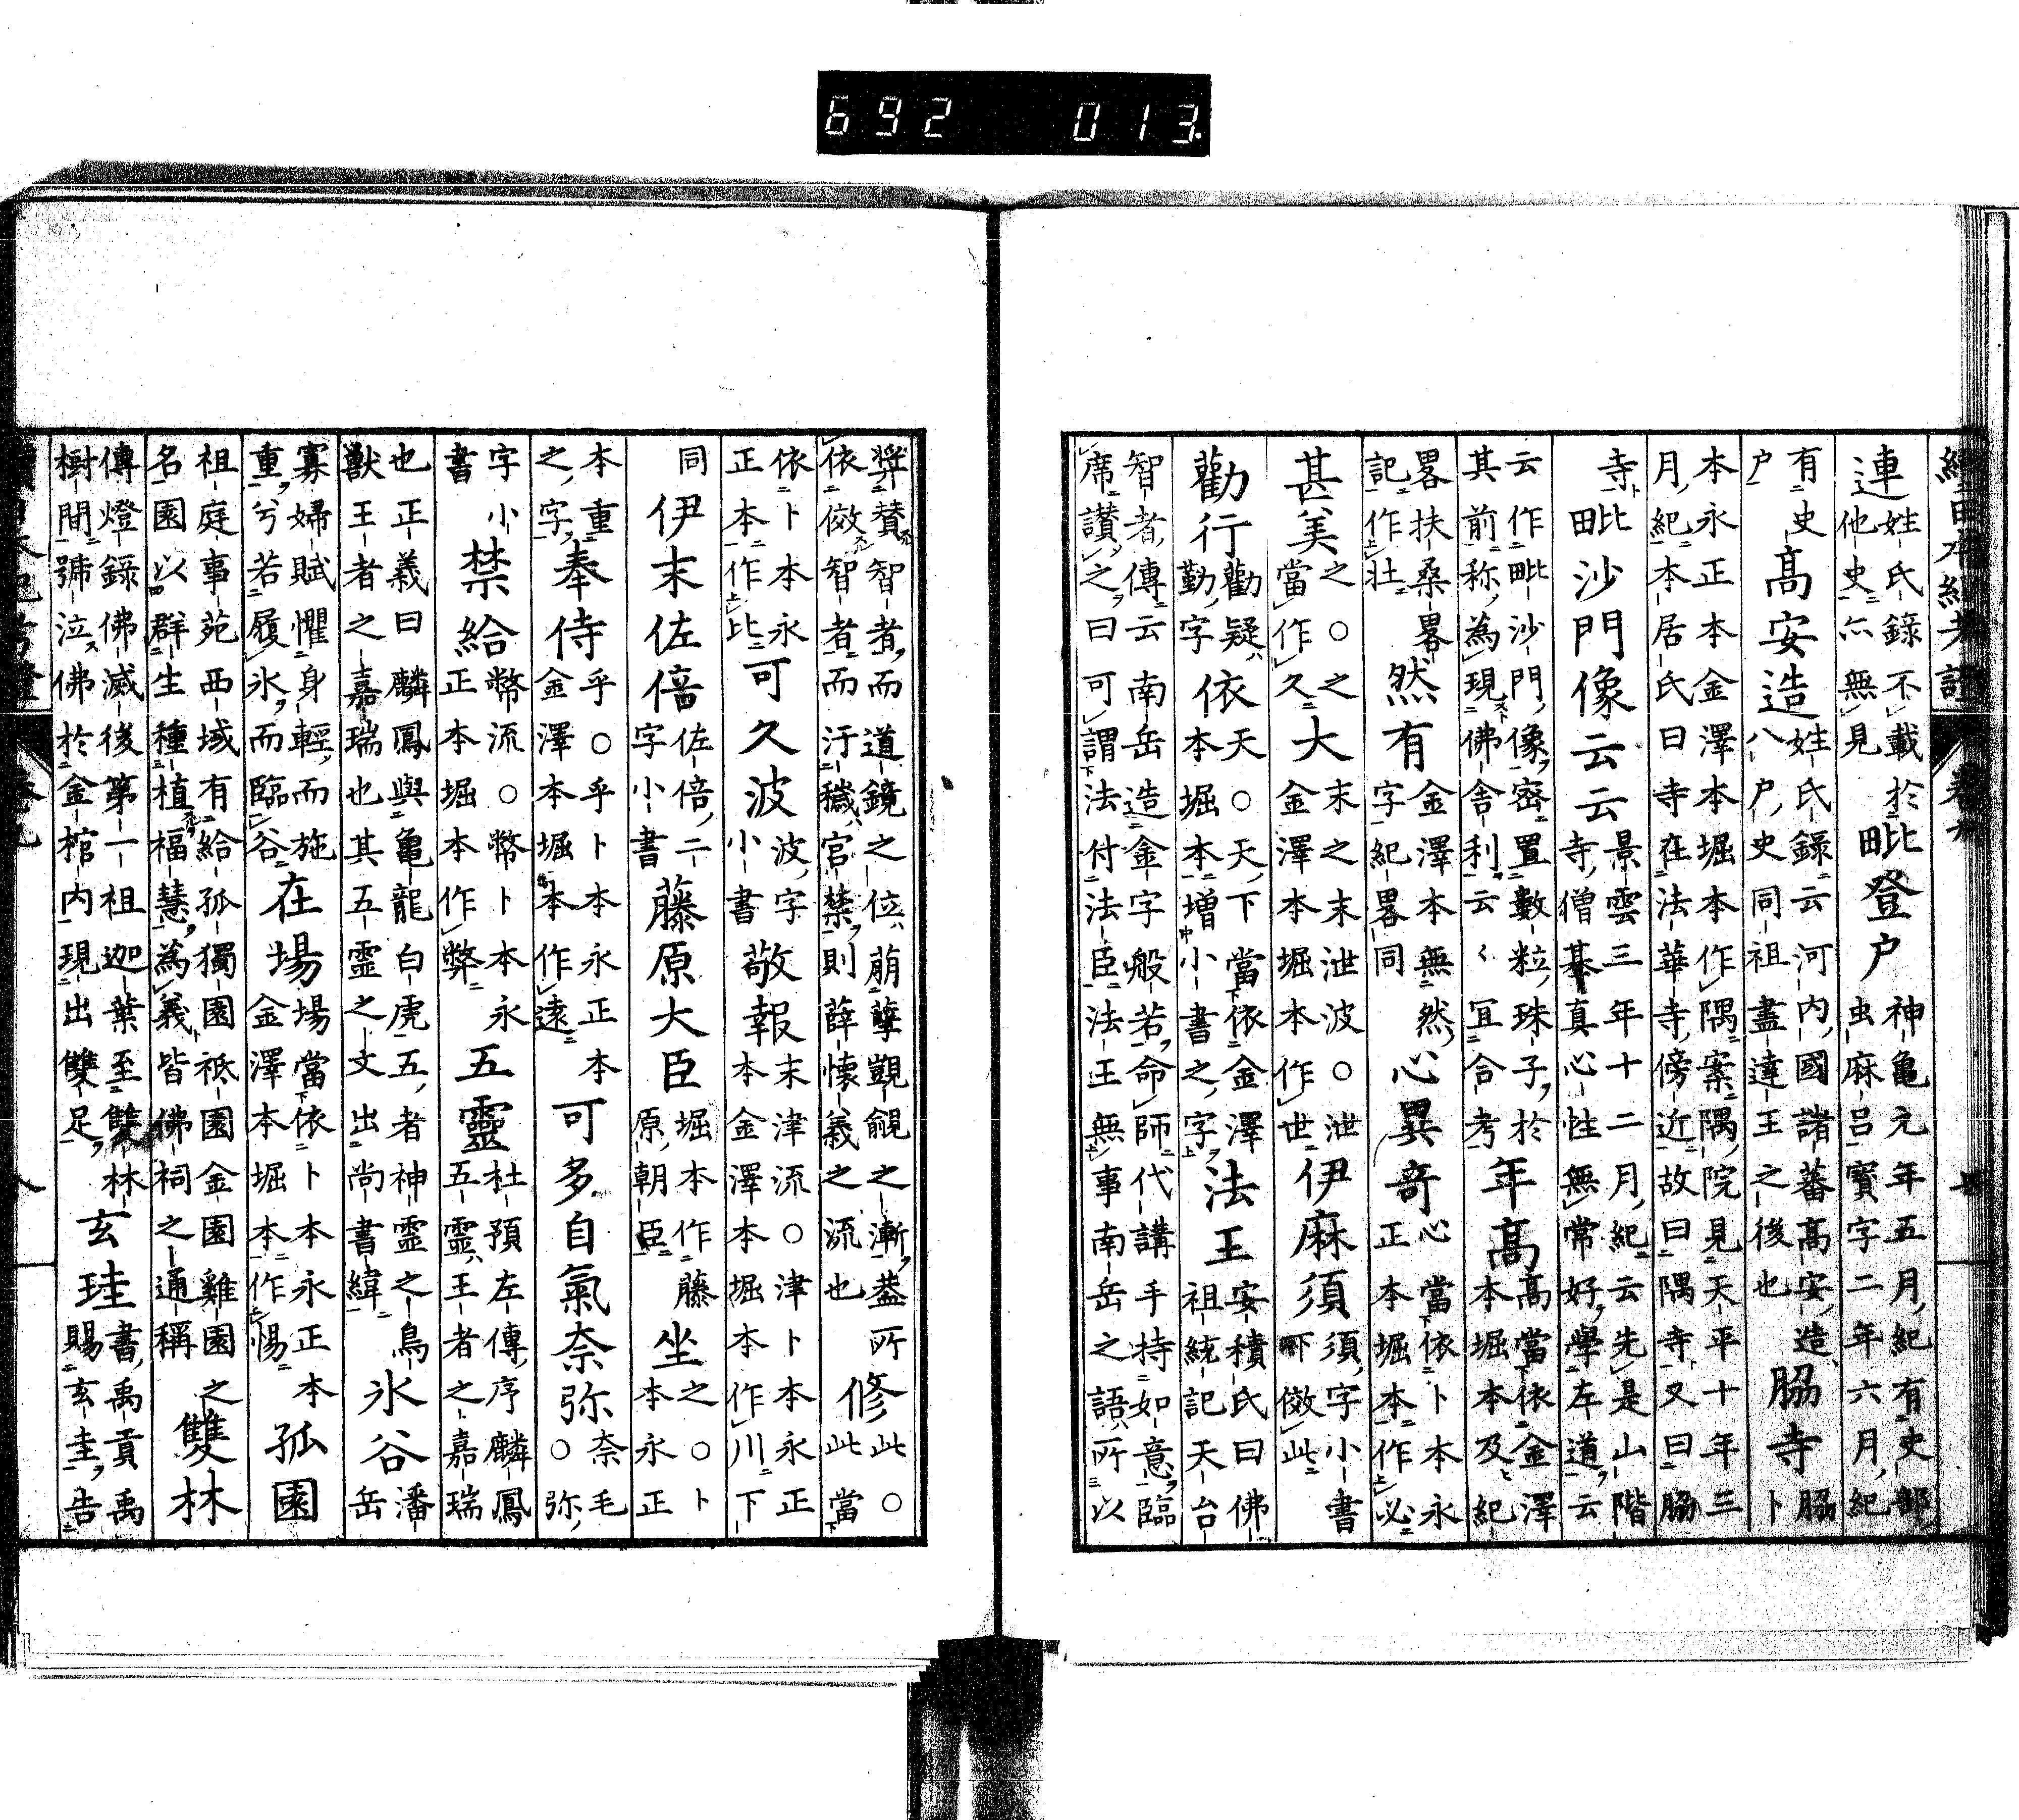 692 013
連姓氏錄不載於他史亦無見毗登戶神龜元年五月紀有史部虫麻呂寳字二年六月紀
有史戶高安造姓氏錄云河内國諸蕃高安造八戶史同祖盡達王之後也脇寺脇卜
本永正本金澤本堀本作隅案隅院見天平十年三月紀本居氏曰寺在法華寺傍近故曰隅寺又曰脇
寺毗沙門像云云景雲三年十二月紀云先是山階寺僧基真心性無常好學左道云
云作毗沙門像密置數粒珠子於其前称為現佛舍利云〻宜合考年高高當依金澤本堀本及紀
畧扶桑畧記作壮然有金澤本無然字紀畧同心異奇心當依卜本永正本堀本作必
甚美之○之當作久大末之末泄波○泄金澤本堀本作世伊麻須須字小書下傚此
勸行勸疑勤字依天○天下當依金澤本堀本增小書之字法王安積氏曰佛祖統記天台
智者傳云南岳造金字般若命師代講手持如意臨席讃之曰可謂法付法臣法王無事南岳之語所以
弉賛智者而道鏡之位萠孽覬覦之漸葢所依傚智者而汙穢宮禁則薛懷義之流也修此○此當
依卜本永正本作比可久波波字小書敬報末津流○津卜本永正本金澤本堀本作川下
同伊末佐倍佐倍二字小書藤原大臣堀本作藤原朝臣坐之○卜本永正
本重之字奉侍乎○乎卜本永正本金澤本堀本作遠可多自氣奈弥奈毛○弥
字小書禁給幣流○幣卜本永正本堀本作弊五靈杜預左傳序麟鳳五靈王者之嘉瑞
也正義曰麟鳳與龜龍白虎五者神靈之鳥獸王者之嘉瑞也其五霊之文出尚書緯氷谷潘岳
寡婦賦懼身輕而施重兮若履氷而臨谷在場場當依卜本永正本金澤本堀本作惕孤園
祖庭事苑西域有給孤獨園祗園金園雞園之名園以群生種植福慧為義皆佛祠之通稱雙林
傳燈錄佛滅後第一祖迦葉至雙林樹間號泣佛於金棺内現出雙足玄珪書禹貢禹賜玄圭告